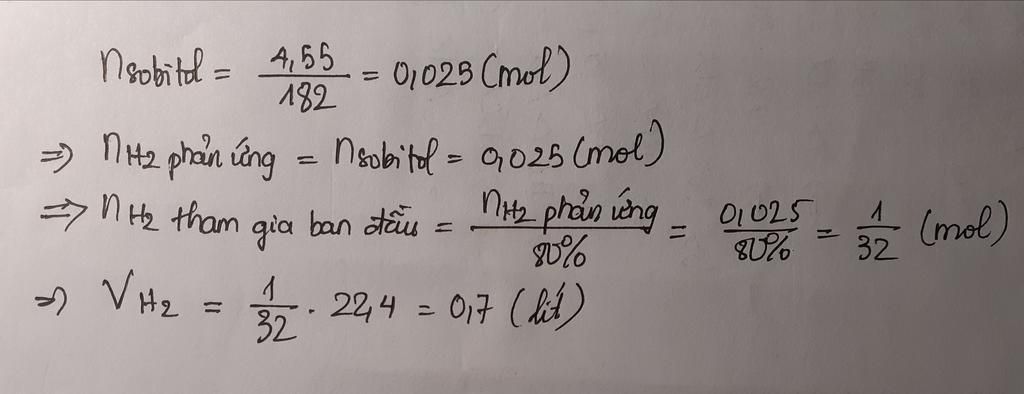 nsobitol = 4,55/182 = 0,025 (mol)
=> nH2 phản ứng = nsobitol = 0,025 (mol)
=> nH2 tham gia ban đầu = nH2 phản ứng/80% = 0,025/80% = 1/32 (mol)
=> VH2 = 1/32 . 22,4 = 0,7 (lít)